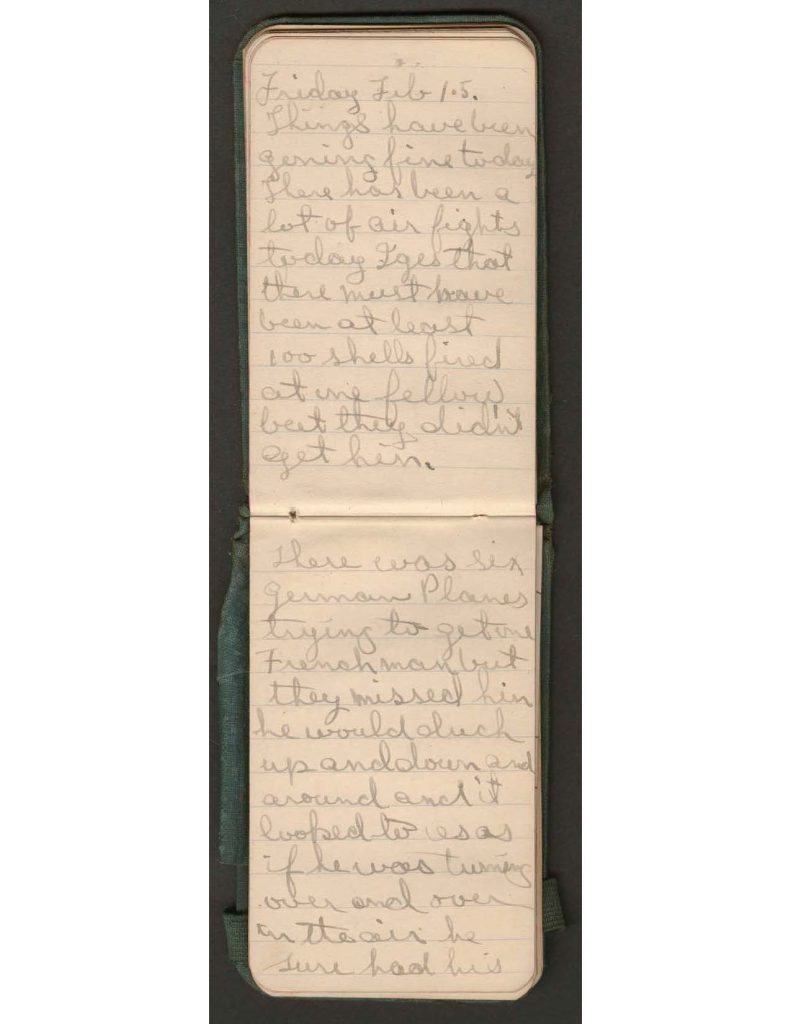 Friday Feb 15.
Things have been
gening fine today
There has been a
lot of air fights
today I ges that
there must have
been at least
100 shells fired
at one fellow
but they didn't
get him.
There was six
German Planes
trying to get one
Frenchman but
they missed him
he would duck
up and down and
around and it
looked to us as
if he was turning
over and over
in the air he
sure had his